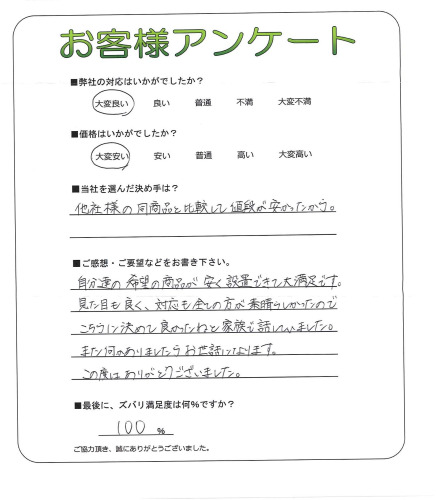 お客様アンケート
■弊社の対応はいかがでしたか？
大変良い 良い 普通 不満 大変不満
■価格はいかがでしたか？
大変安い 安い 普通 高い 大変高い
■当社を選んだ決め手は？
他社様の同商品と比較して値段が安かったから。
■ご感想・ご要望などをお書き下さい。
自分達の希望の商品が安く設置できて大満足です。
見た目も良く、対応も全ての方が素晴らしかったので
こちらに決めて良かったねと家族で話していました。
また何かありましたらお世話になります。
この度はありがとうございました。
■最後に、ズバリ満足度は何％ですか？
100 %
ご協力頂き、誠にありがとうございました。